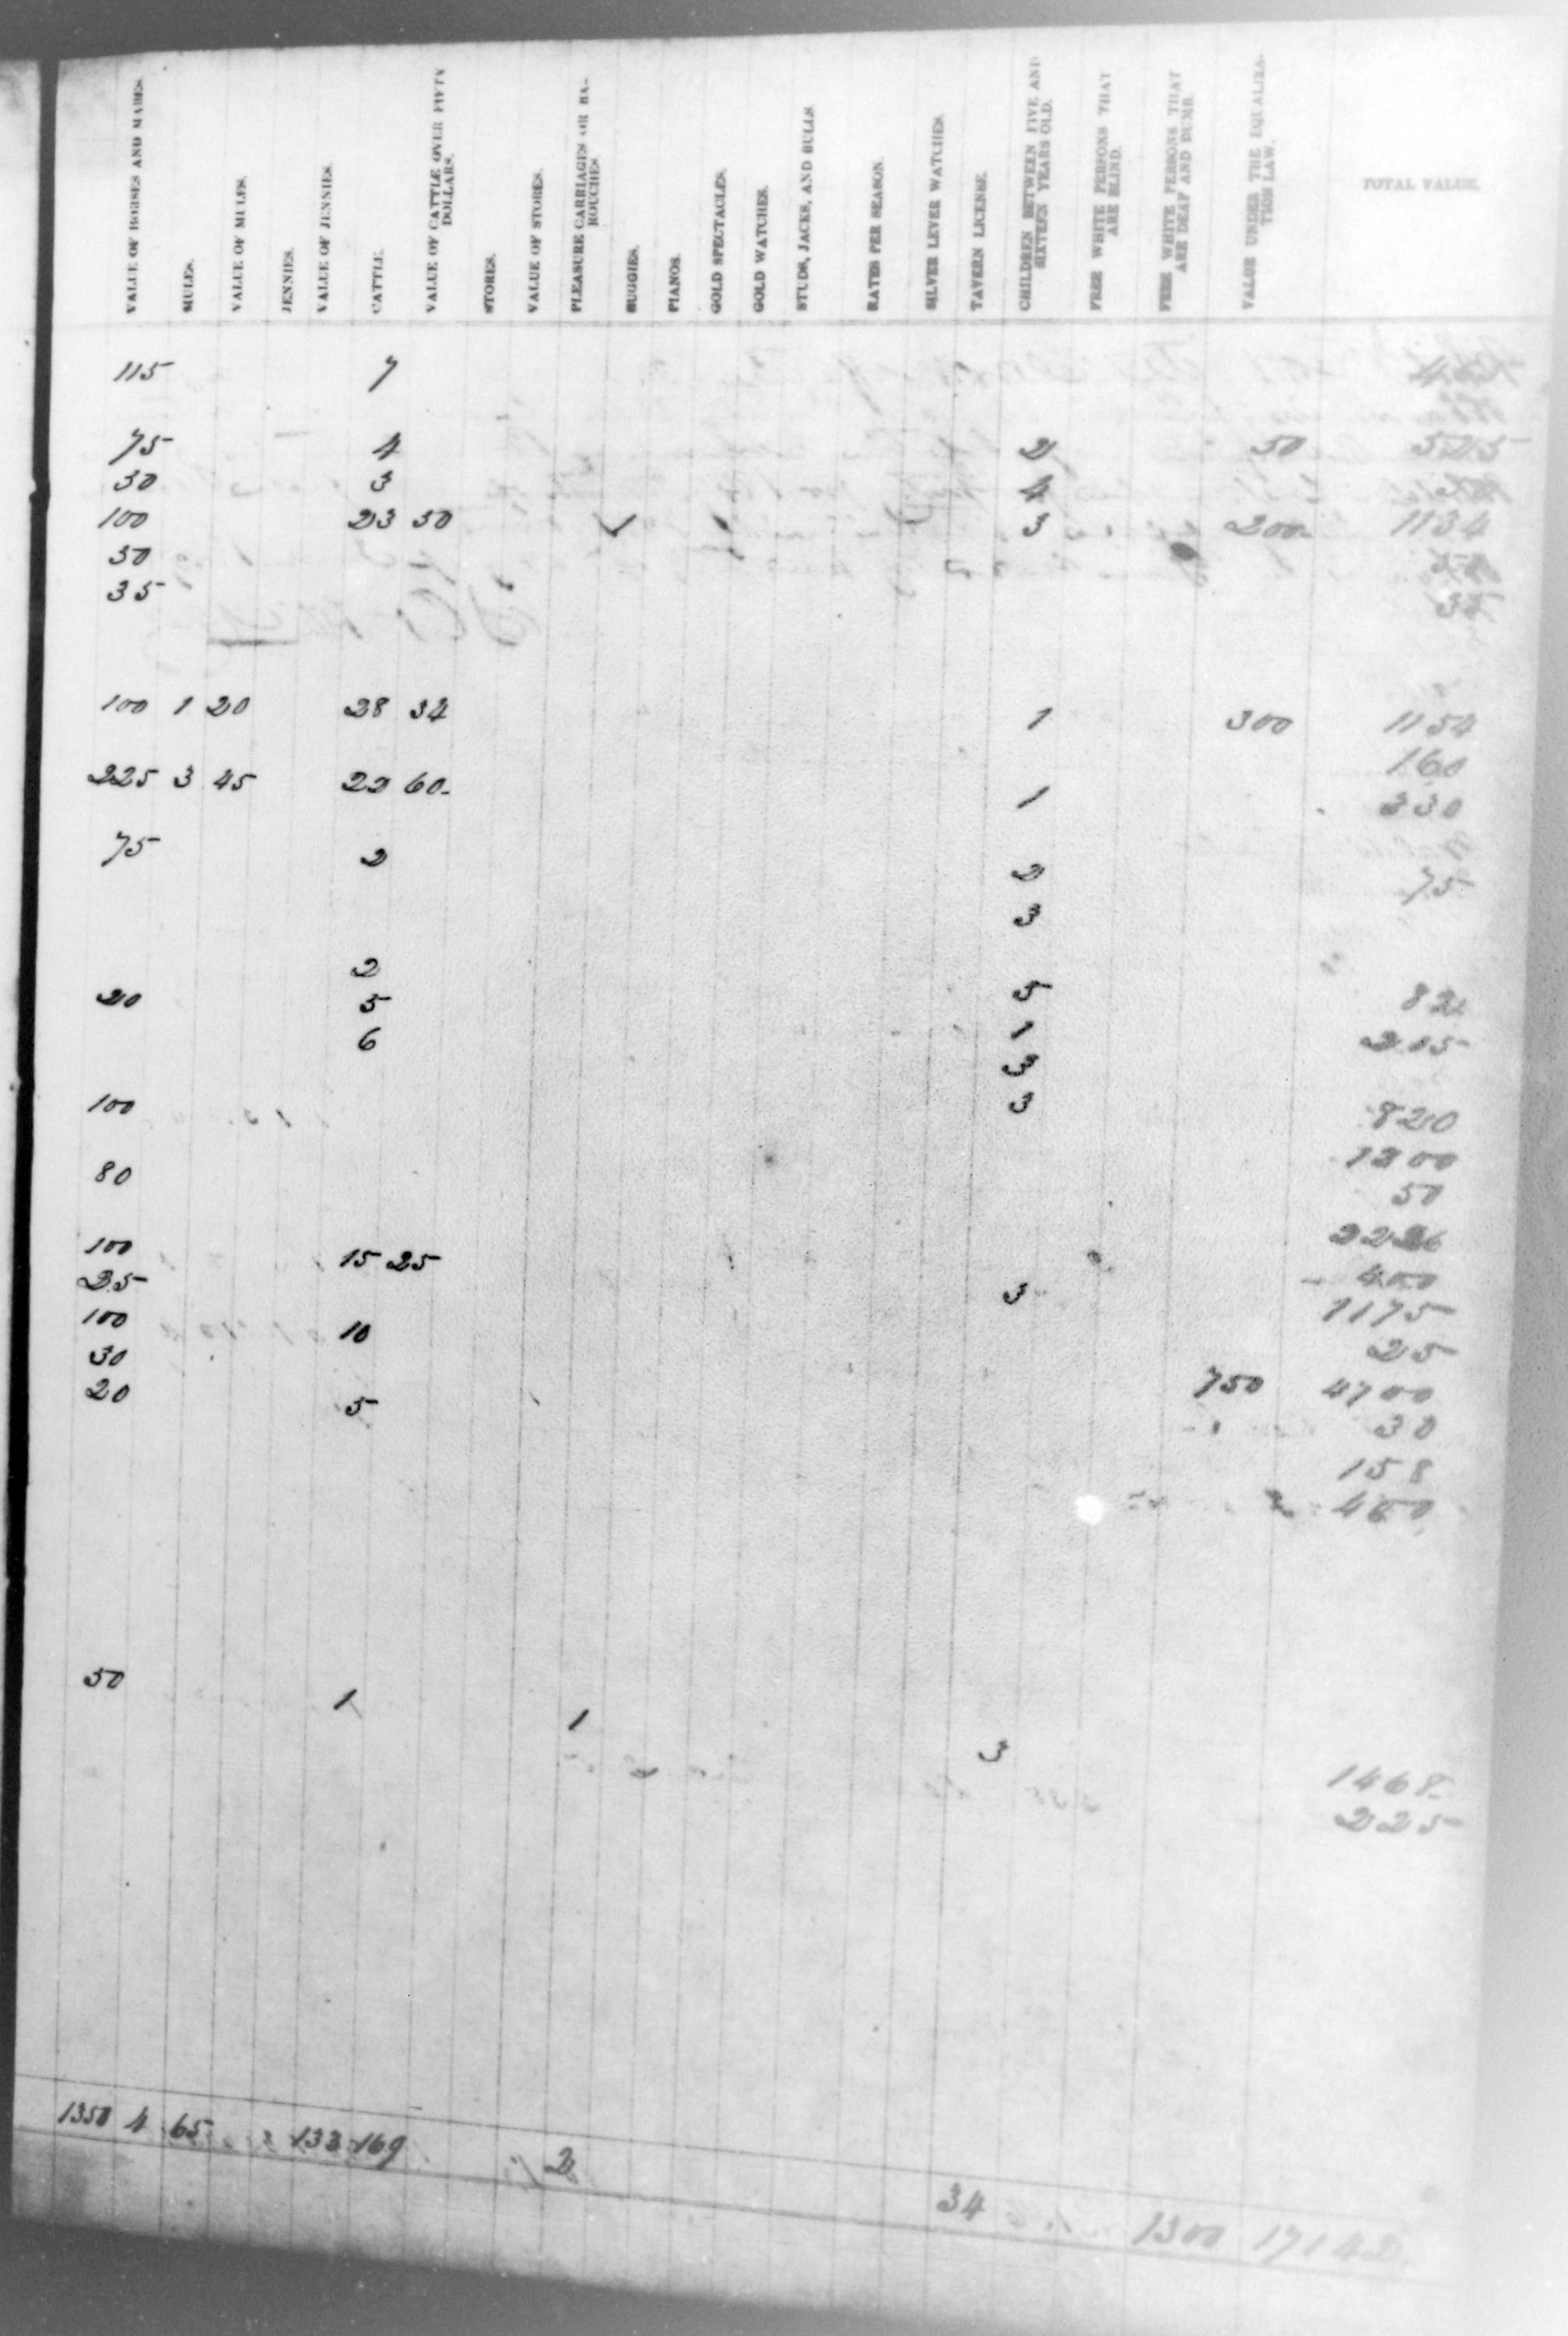 VALUE OF HORSES AND MARES. MULES. VALUE OF MULES. JENNIES. VALUE OF JENNIES. CATTLE. VALUE OF CATTLE OVER FIFTY DOLLARS. STORES. VALUE OF STORES. PLEASURE CARRIAGES OR BAROUCHES BUGGIES. PIANOS. GOLD SPECTACLES. GOLD WATCHES. STUDS, JACKS, AND BULLS RATES PER SEASON. SILVER LEVER WATCHES. TAVERN LICENSE. CHILDREN BETWEEN FIVE AND SIXTEEN YEARS OLD. FREE WHITE PERSONS THAT ARE BLIND. FREE WHITE PERSONS THAT ARE DEAF AND DUMB. VALUE UNDER THE EQUALIZATION LAW. TOTAL VALUE.
115 7
75 4 2 50 525
30 3 4
100 23 50 1 3 200 1134
50
35 35
100 1 20 28 34 1 300 1154
160
225 3 45 22 60 1 330
75 2 2 75
3
2
20 5 5 82
6 1 205
3
100 3 820
1200
80 50
2226
100 15 25 400
25 3 1175
100 10 25
30 750 4700
20 5 30
158
450
50 1 1
3
1468
225
1350 4 65 133 169 2 34 1300 17142